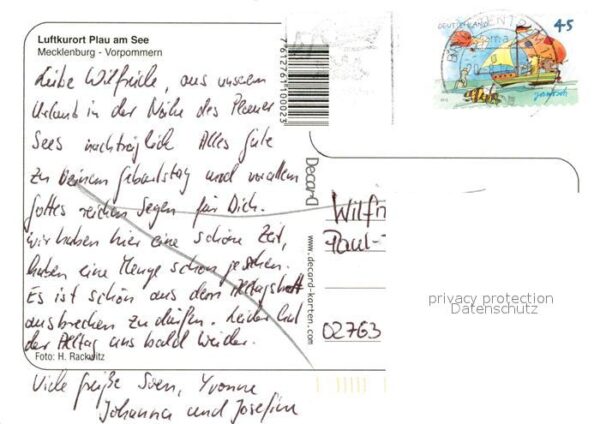 Luftkurort Plau am See
Mecklenburg - Vorpommern
Liebe Wilfriede, aus unserem
Urlaub in der Nähe des Plauer
Sees nachträglich Alles Gute
zu Deinem Geburtstag und vor allem
Gottes reichen Segen für Dich.
Wir haben hier eine schöne Zeit,
haben eine Menge schon gesehen.
Es ist schön aus dem Alltagstrott
ausbrechen zu dürfen. Leider hat
der Alltag uns bald wieder.
Foto: H. Rackwitz
Viele Grüße Sven, Yvonne
Johanna und Josefine
7612761100023
Decard
www.decard-karten.com
DEUTSCHLAND
45
janosch
Wilfri
Paul-
02763
privacy protection
Datenschutz